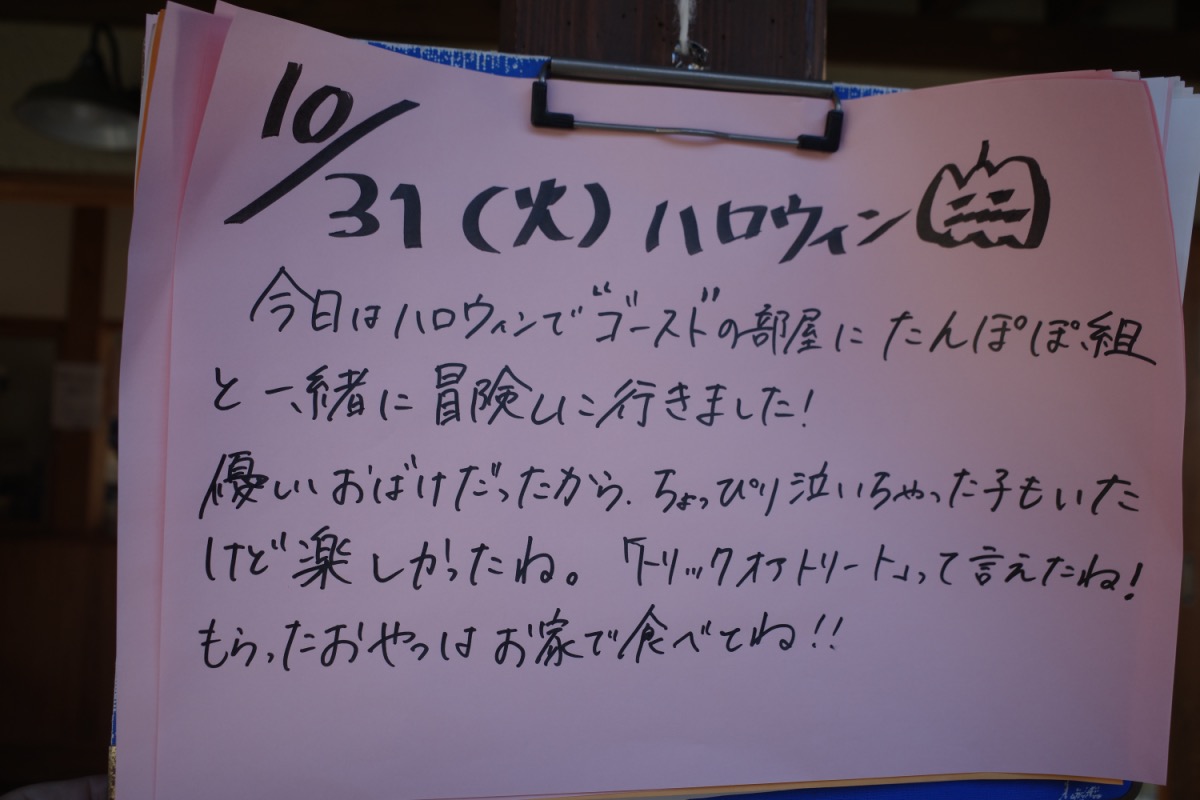 10/31(火)ハロウィン
今日はハロウィンで"ゴースド"の部屋にたんぽぽ組
と一緒に冒険しに行きました!
優しいおばけだったから、ちょっぴり泣いちゃった子もいた
けど楽しかったね。「トリックオアトリート」って言えたね!
もらったおやつはお家で食べてね!!